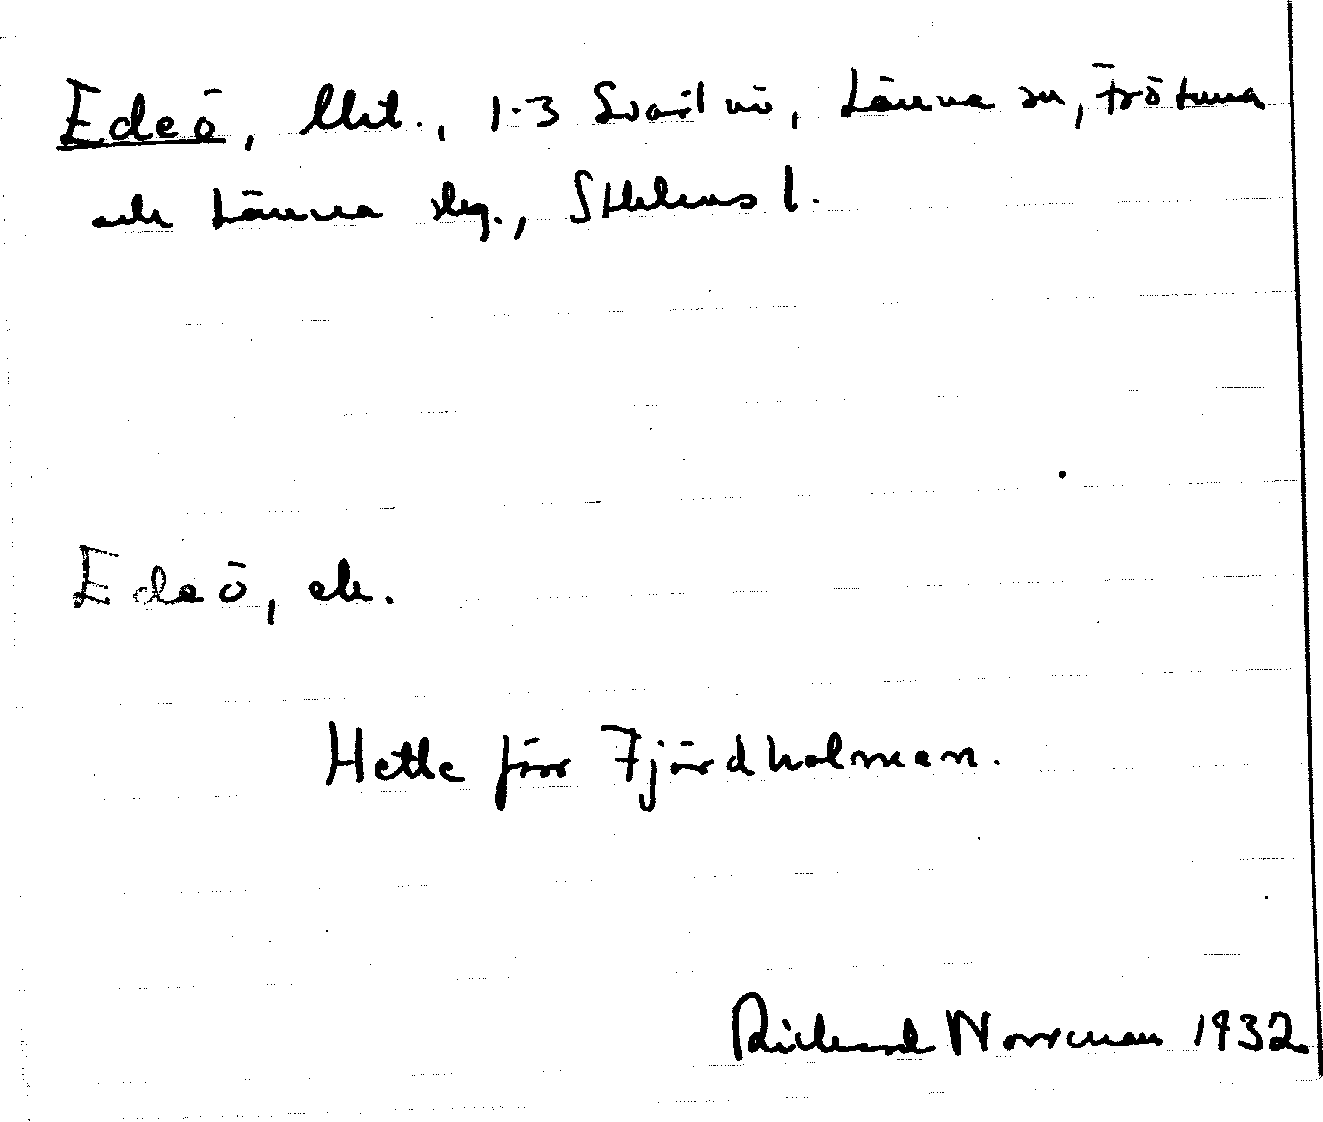 Edeö, lht., 1-3 Svartnö, Länna sn, Frötuna
och Länna skg., Sthlms l.
Edeö, ek.
Hette förr Fjärdholmen.
Rickard Norrman 1932